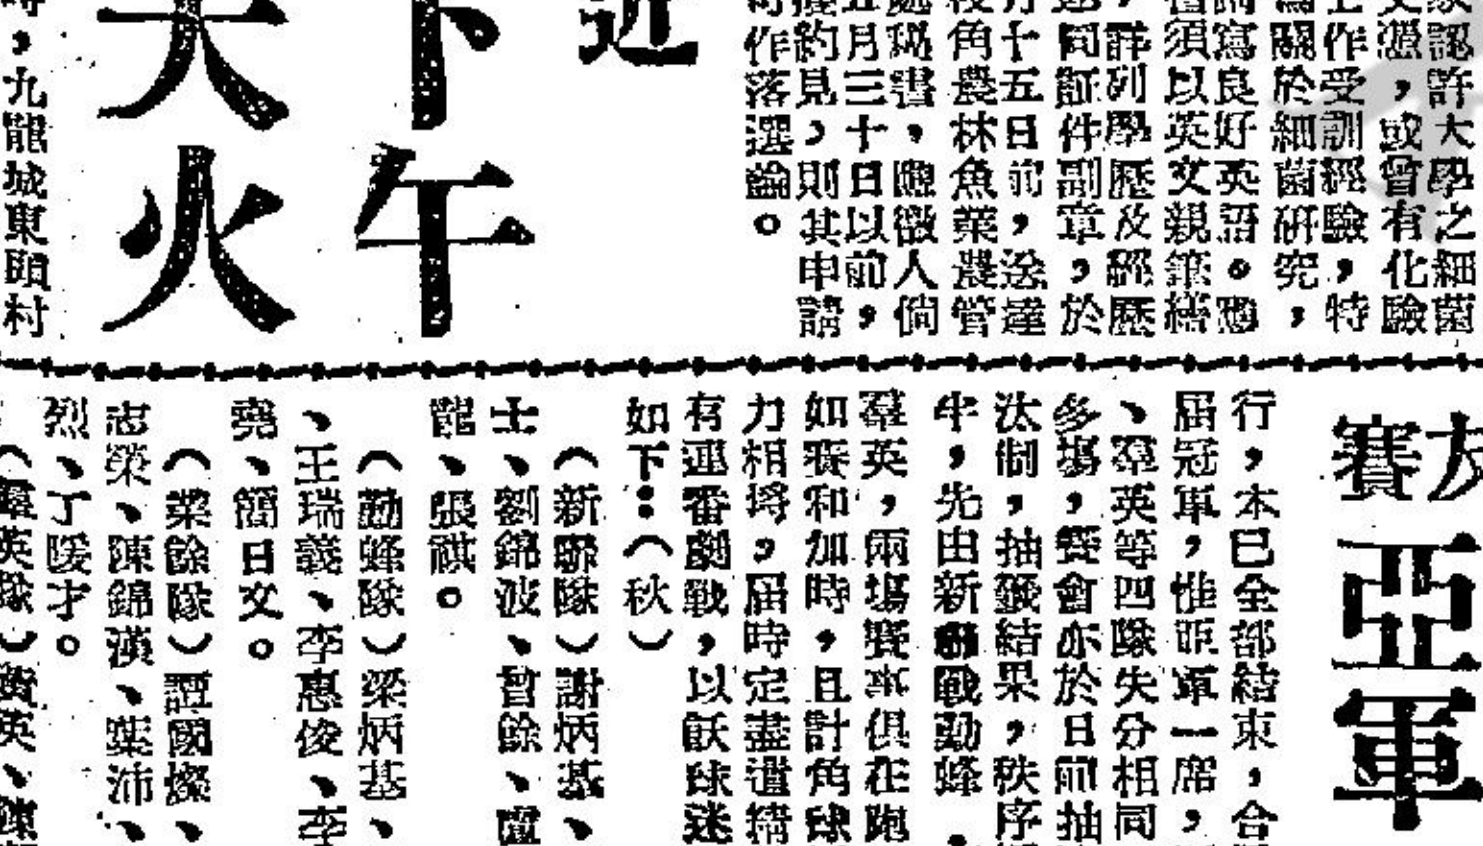 家認許大學之細菌
文憑，或曾有化驗
工作受訓經驗，特
為關於細菌研究，
寫良好英語。應
須以英文親筆繕
，詳列學歷及經歷
同証件副章，於
月十五日前，送達
役角農林魚業農管
處秘書，應徵人倘
五月三十日以前，
獲約見，則其申請
作落選論。
近
下午
大火
時，九龍城東頭村
友
賽亞軍
行，本已全部結束，合
屆冠軍，惟亞軍一席，
、羣英等四隊失分相同
多塲，賽會亦於日前抽
汰制，抽籤結果，秩序
牛，先由新聯戰勤蜂，
羣英，兩塲賽事俱在跑
如賽和加時，且計角球
力相埒，屆時定盡遣精
有連番劇戰，以飫球迷
如下：（秋）
（新聯隊）謝炳基、
士、劉錦波、曾餘、盧
龍、張祺。
（勤蜂隊）梁炳基、
、王瑞義、李惠俊、李
堯、簡日文。
（業餘隊）譚國燦、
志榮、陳錦漢、葉沛、
烈、丁暖才。
（羣英隊）黃英、陳